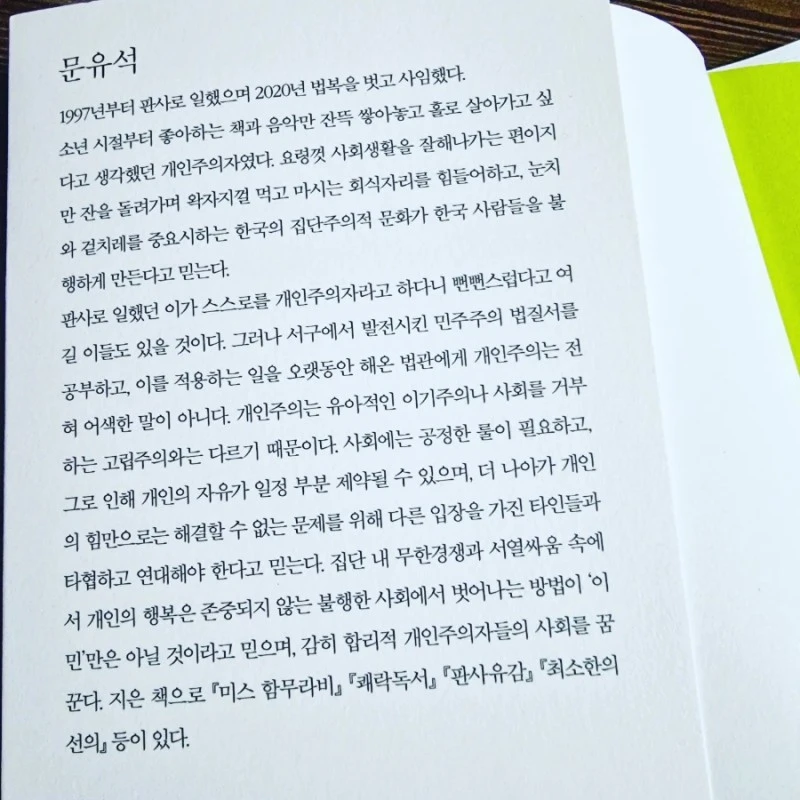 문유석
1997년부터 판사로 일했으며 2020년 법복을 벗고 사임했다.
소년 시절부터 좋아하는 책과 음악만 잔뜩 쌓아놓고 홀로 살아가고 싶
다고 생각했던 개인주의자였다. 요령껏 사회생활을 잘해나가는 편이지
만 잔을 돌려가며 왁자지껄 먹고 마시는 회식자리를 힘들어하고, 눈치
와 겉치레를 중요시하는 한국의 집단주의적 문화가 한국 사람들을 불
행하게 만든다고 믿는다.
판사로 일했던 이가 스스로를 개인주의자라고 하다니 뻔뻔스럽다고 여
길 이들도 있을 것이다. 그러나 서구에서 발전시킨 민주주의 법질서를
공부하고, 이를 적용하는 일을 오랫동안 해온 법관에게 개인주의는 전
혀 어색한 말이 아니다. 개인주의는 유아적인 이기주의나 사회를 거부
하는 고립주의와는 다르기 때문이다. 사회에는 공정한 룰이 필요하고,
그로 인해 개인의 자유가 일정 부분 제약될 수 있으며, 더 나아가 개인
의 힘만으로는 해결할 수 없는 문제를 위해 다른 입장을 가진 타인들과
타협하고 연대해야 한다고 믿는다. 집단 내 무한경쟁과 서열싸움 속에
서 개인의 행복은 존중되지 않는 불행한 사회에서 벗어나는 방법이 ‘이
민’만은 아닐 것이라고 믿으며, 감히 합리적 개인주의자들의 사회를 꿈
꾼다. 지은 책으로 『미스 함무라비』 『쾌락독서』 『판사유감』 『최소한의
선의』 등이 있다.